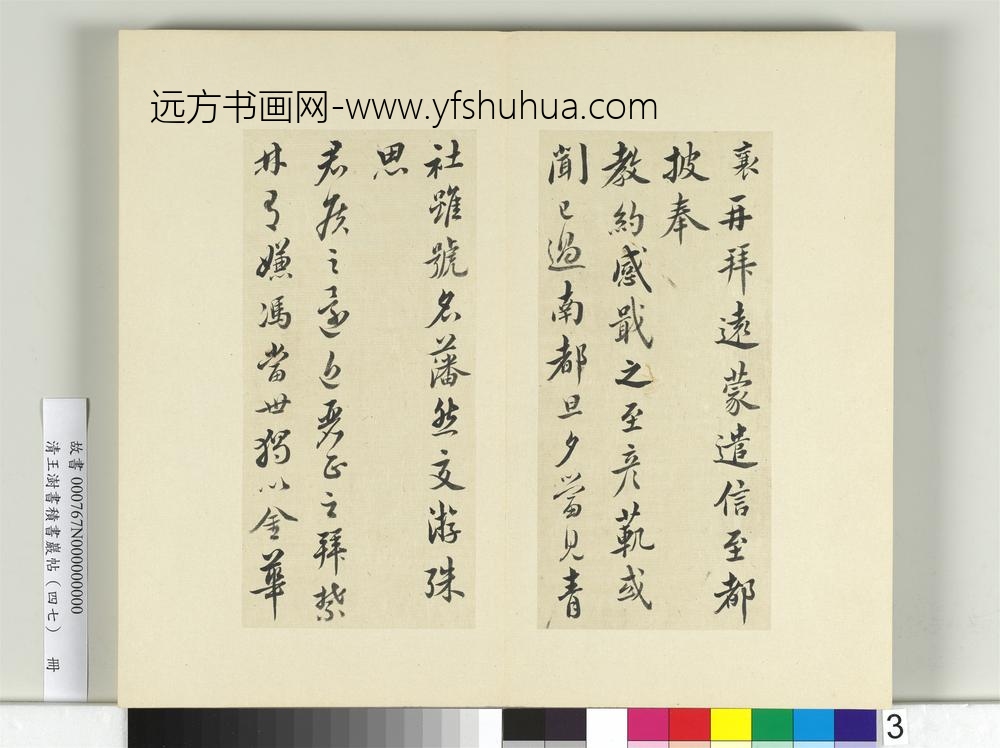 远方书画网-www.yfshuhua.com
襄再拜遠蒙遣信至都
披奉
教約感戢之至彦範或
聞已過南都旦夕當見青
社雖號名藩然交游殊
思
君侯之還近麗正之拜禁
林有嫌馮當世獨以金華
故書000767N000000000
清王澍書積書巖帖(四七) 冊
3